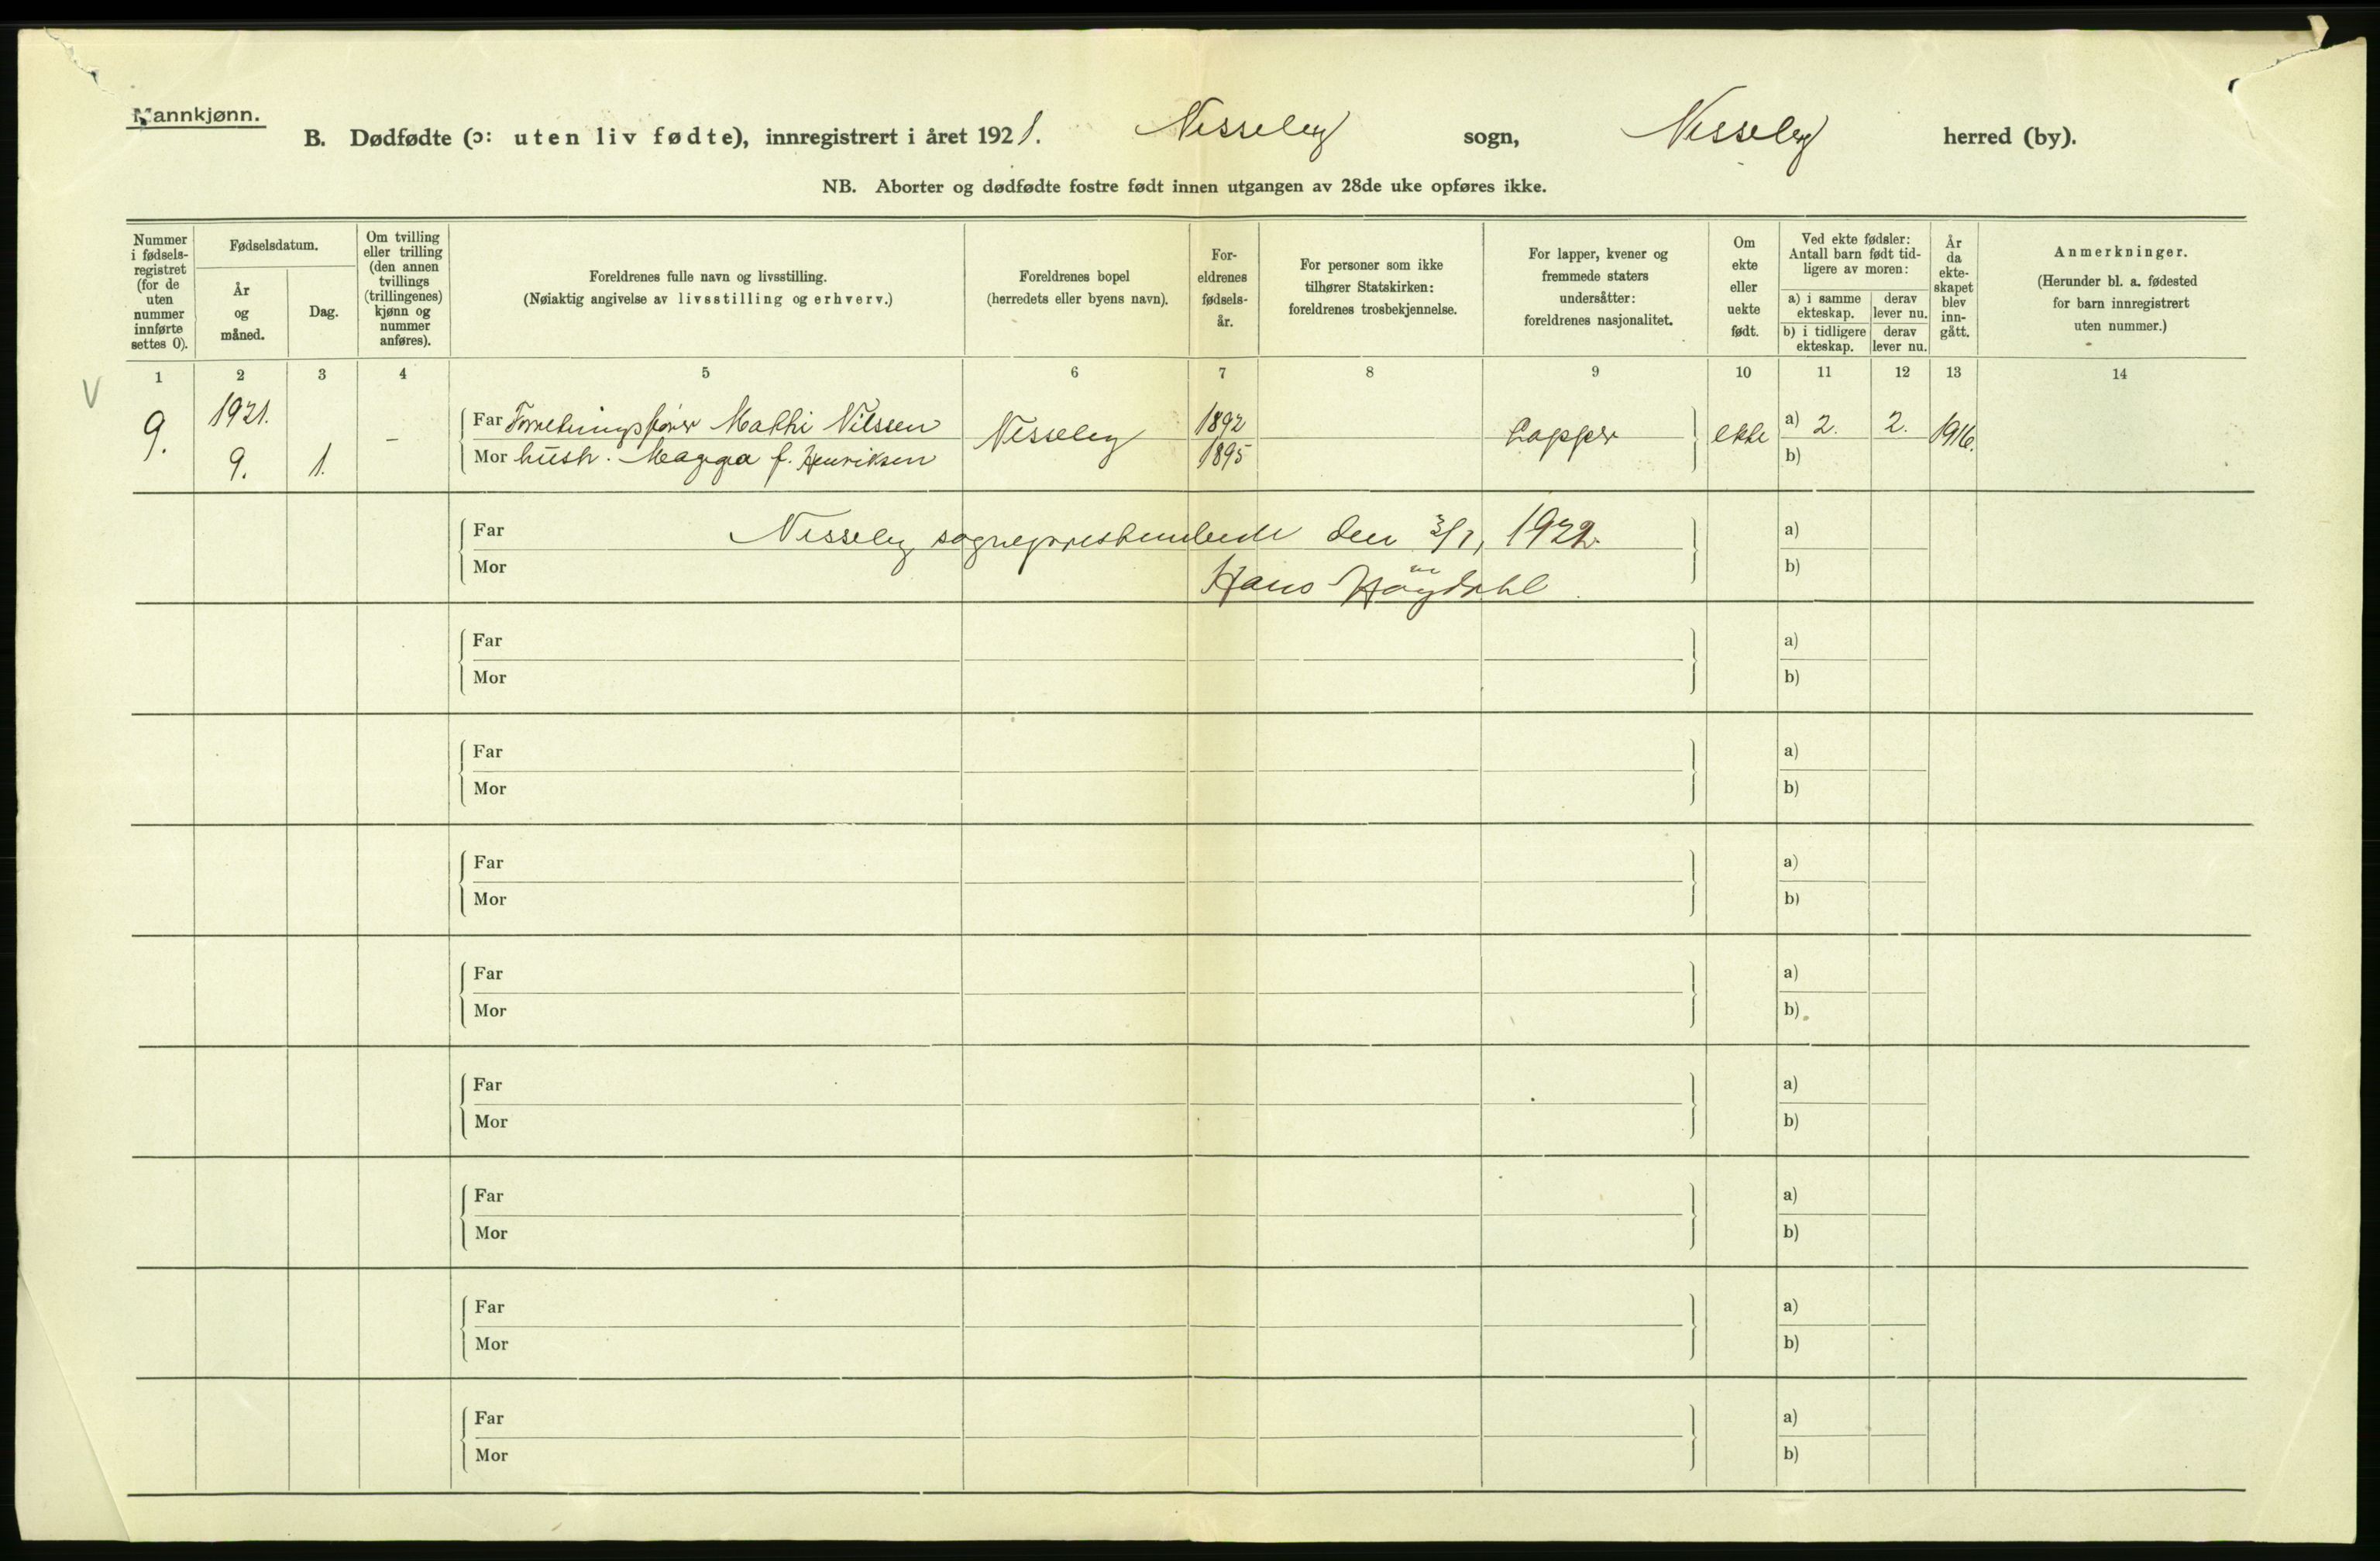 Mannkjønn.
B. Dødfødte (ɔ: uten liv fødte), innregistrert i året 1921. Nesseby sogn, Nesseby herred (by).
NB. Aborter og dødfødte fostre født innen utgangen av 28de uke opføres ikke.
Nummer
i fødsels-
registret
(for de
uten
nummer
innførte
settes 0).
Fødselsdatum.
År
og
måned.
Dag.
Om tvilling
eller trilling
(den annen
tvillings
(trillingenes)
kjønn og
nummer
anføres).
Foreldrenes fulle navn og livsstilling.
(Nøiaktig angivelse av livsstilling og erhverv.)
Foreldrenes bopel
(herredets eller byens navn).
For-
eldrenes
fødsels-
år.
For personer som ikke
tilhører Statskirken:
foreldrenes trosbekjennelse.
For lapper, kvener og
fremmede staters
undersåtter:
foreldrenes nasjonalitet.
Om
ekte
eller
uekte
født.
Ved ekte fødsler:
Antall barn født tid-
ligere av moren:
a) i samme
ekteskap.
derav
lever nu.
b) i tidligere
ekteskap.
derav
lever nu.
År
da
ekte-
skapet
blev
inn-
gått.
Anmerkninger.
(Herunder bl. a. fødested
for barn innregistrert
uten nummer.)
1 2 3 4 5 6 7 8 9 10 11 12 13 14
V
9. 1921. 9. 1. –
Far Forretningsfører Mathi Nilssen
Mor hustr. Magga f. Henriksen
Nesseby
1892
1895
Lapper
ekte
a) 2. 2.
b)
1916.
Far Nesseby sogneprestembede den 3/1, 1922. a)
Mor Hans Høydahl b)
Far a)
Mor b)
Far a)
Mor b)
Far a)
Mor b)
Far a)
Mor b)
Far a)
Mor b)
Far a)
Mor b)
Far a)
Mor b)
Far a)
Mor b)